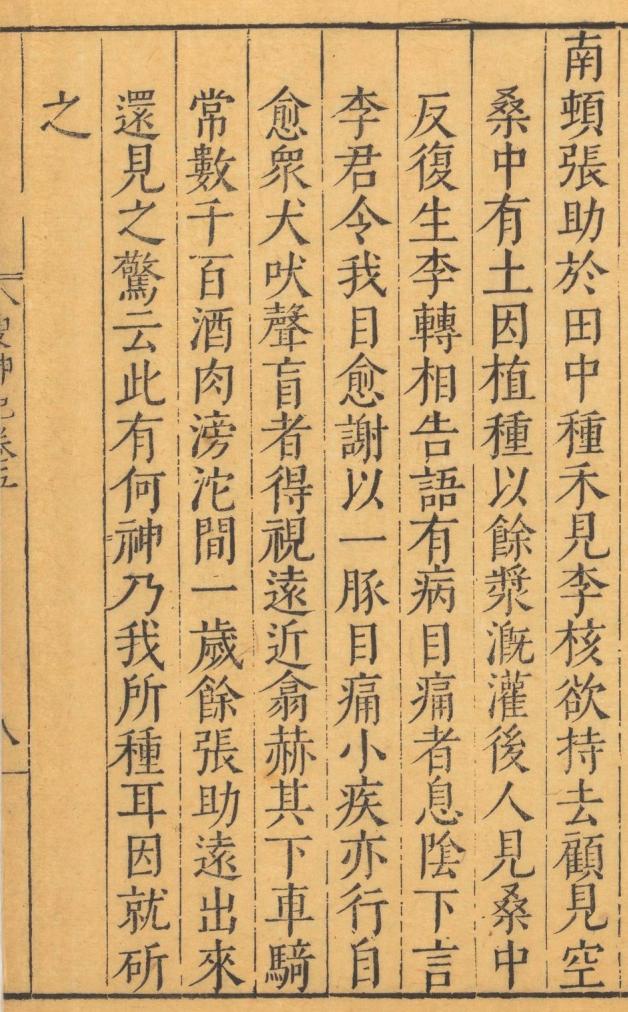 南頓張助於田中種禾見李核欲持去顧見空
桑中有土因植種以餘漿溉灌後人見桑中
反復生李轉相告語有病目痛者息陰下言
李君令我目愈謝以一豚目痛小疾亦行自
愈衆犬吠聲盲者得視遠近翕赫其下車騎
常數千百酒肉滂沱間一歲餘張助遠出來
還見之驚云此有何神乃我所種耳因就斫
之
卷五
八